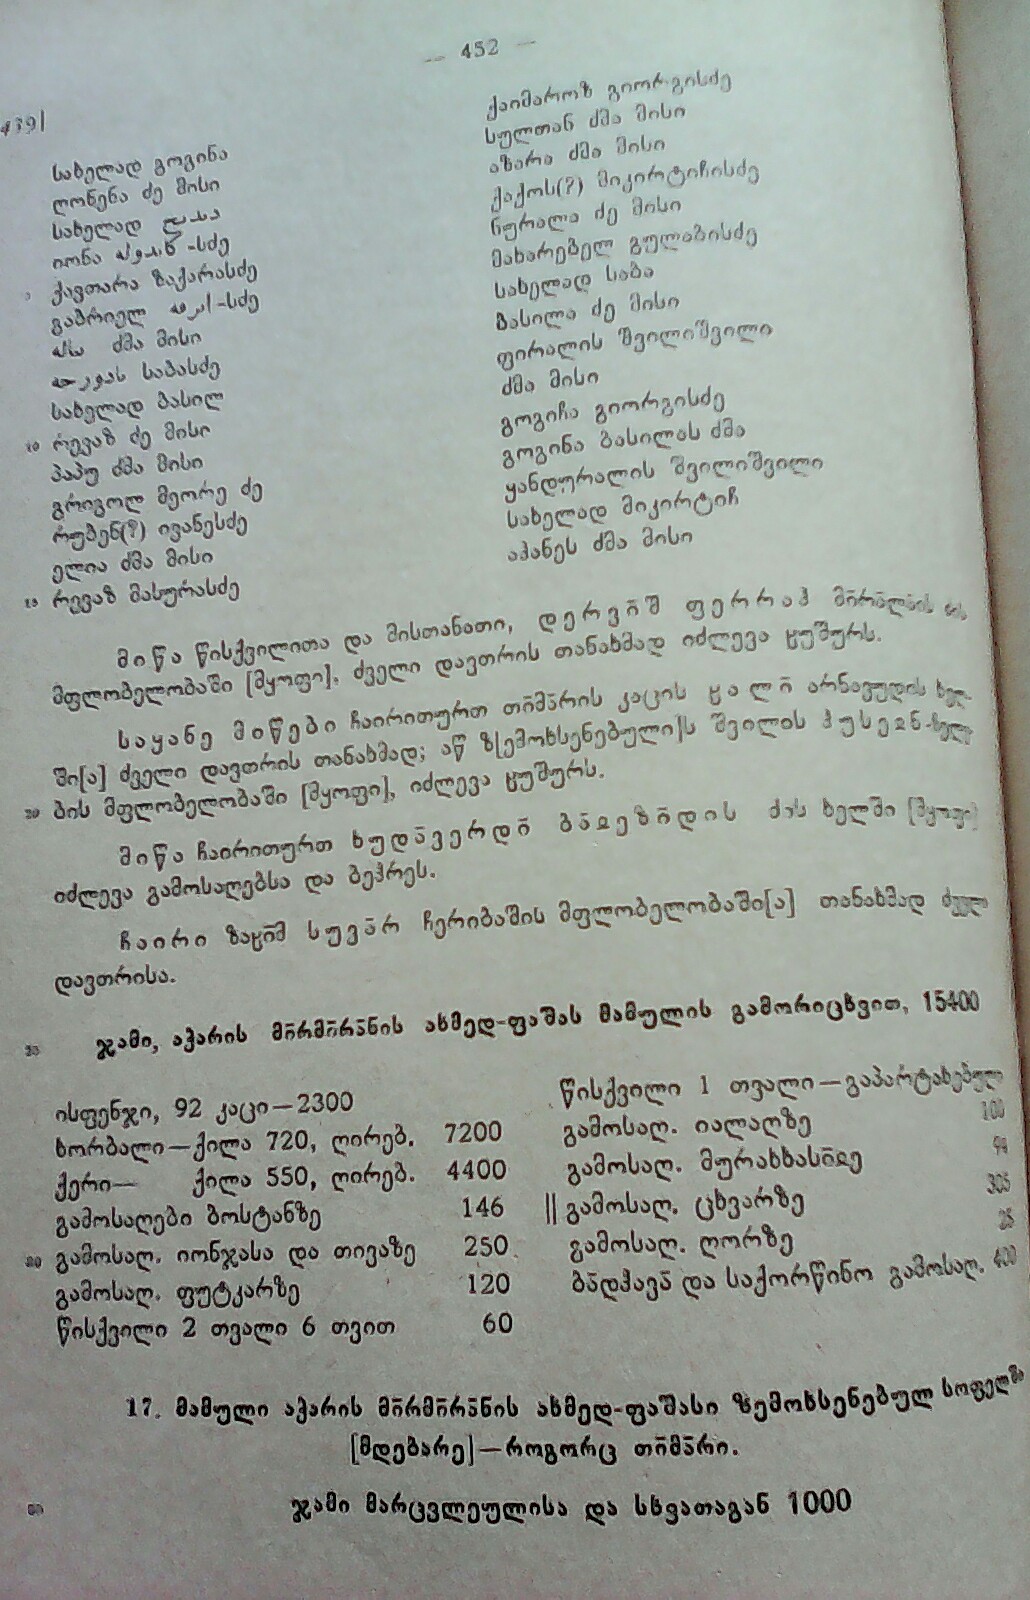 — 452 —
439|
სახელად გოგინა
ღონენა ძე მისი
სახელად
იონა -სძე
ქავთარა ზაქარასძე
გაბრიელ -სძე
ძმა მისი
საბასძე
სახელად ბასილ
10 რევაზ ძე მისი
პაპუ ძმა მისი
გრიგოლ მეორე ძე
რუბენ(?) ივანესძე
ელია ძმა მისი
15 რევაზ მასურასძე
ქაიმაროზ გიორგისძე
სულთან ძმა მისი
აზარა ძმა მისი
ქაქოს(?) მიკირტიჩისძე
ნურალა ძე მისი
მახარებელ გულაბისძე
სახელად საბა
ბასილა ძე მისი
ფირალის შვილიშვილი
ძმა მისი
გოგიჩა გიორგისძე
გოგინა ბასილას ძმა
ყანდურალის შვილიშვილი
სახელად მიკირტიჩ
აჰანეს ძმა მისი
მიწა წისქვილითა და მისთანათი, დერვიშ ფერრაჰ
მფლობელობაში [მყოფი], ძველი დავთრის თანახმად იძლევა ჺუშურს.
საყანე მიწები ჩაირითურთ თი̄მა̄რის კაცის ჺალი̄ არნავუდის ხელ-
ში[ა] ძველი დავთრის თანახმად; აწ ზ[ემოხსენებული]ს შვილის ჰუსეჲნ-
20 ბის მფლობელობაში [მყოფი], იძლევა ჺუშურს.
მიწა ჩაირითურთ ხუდა̄ვერდი̄ ბა̄ჲეზი̄დის ძის ხელში [მყოფი]
იძლევა გამოსაღებსა და ბეჰრეს.
ჩაირი ზაჺი̄მ სუვა̄რ ჩერიბაშის მფლობელობაში[ა] თანახმად ძველი
დავთრისა.
25 ჯამი, აჭარის მი̄რმი̄რა̄ნის ახმედ-ფაშას მამულის გამორიცხვით, 15400
ისფენჯი, 92 კაცი—2300
ხორბალი—ქილა 720, ღირებ. 7200
ქერი— ქილა 550, ღირებ. 4400
გამოსაღები ბოსტანზე 146
30 გამოსაღ. იონჯასა და თივაზე 250
გამოსაღ. ფუტკარზე 120
წისქვილი 2 თვალი 6 თვით 60
წისქვილი 1 თვალი—გაპარტახებული
გამოსაღ. იალაღზე 100
გამოსაღ. მურახხასი̄ჲე
|| გამოსაღ. ცხვარზე 305
გამოსაღ. ღორზე 25
ბა̄დჰავა̄ და საქორწინო გამოსაღ. 400
17. მამული აჭარის მი̄რმი̄რა̄ნის ახმედ-ფაშასი ზემოხსენებულ სოფელში
[მდებარე]—როგორც თი̄მა̄რი.
ჯამი მარცვლეულისა და სხვათაგან 1000